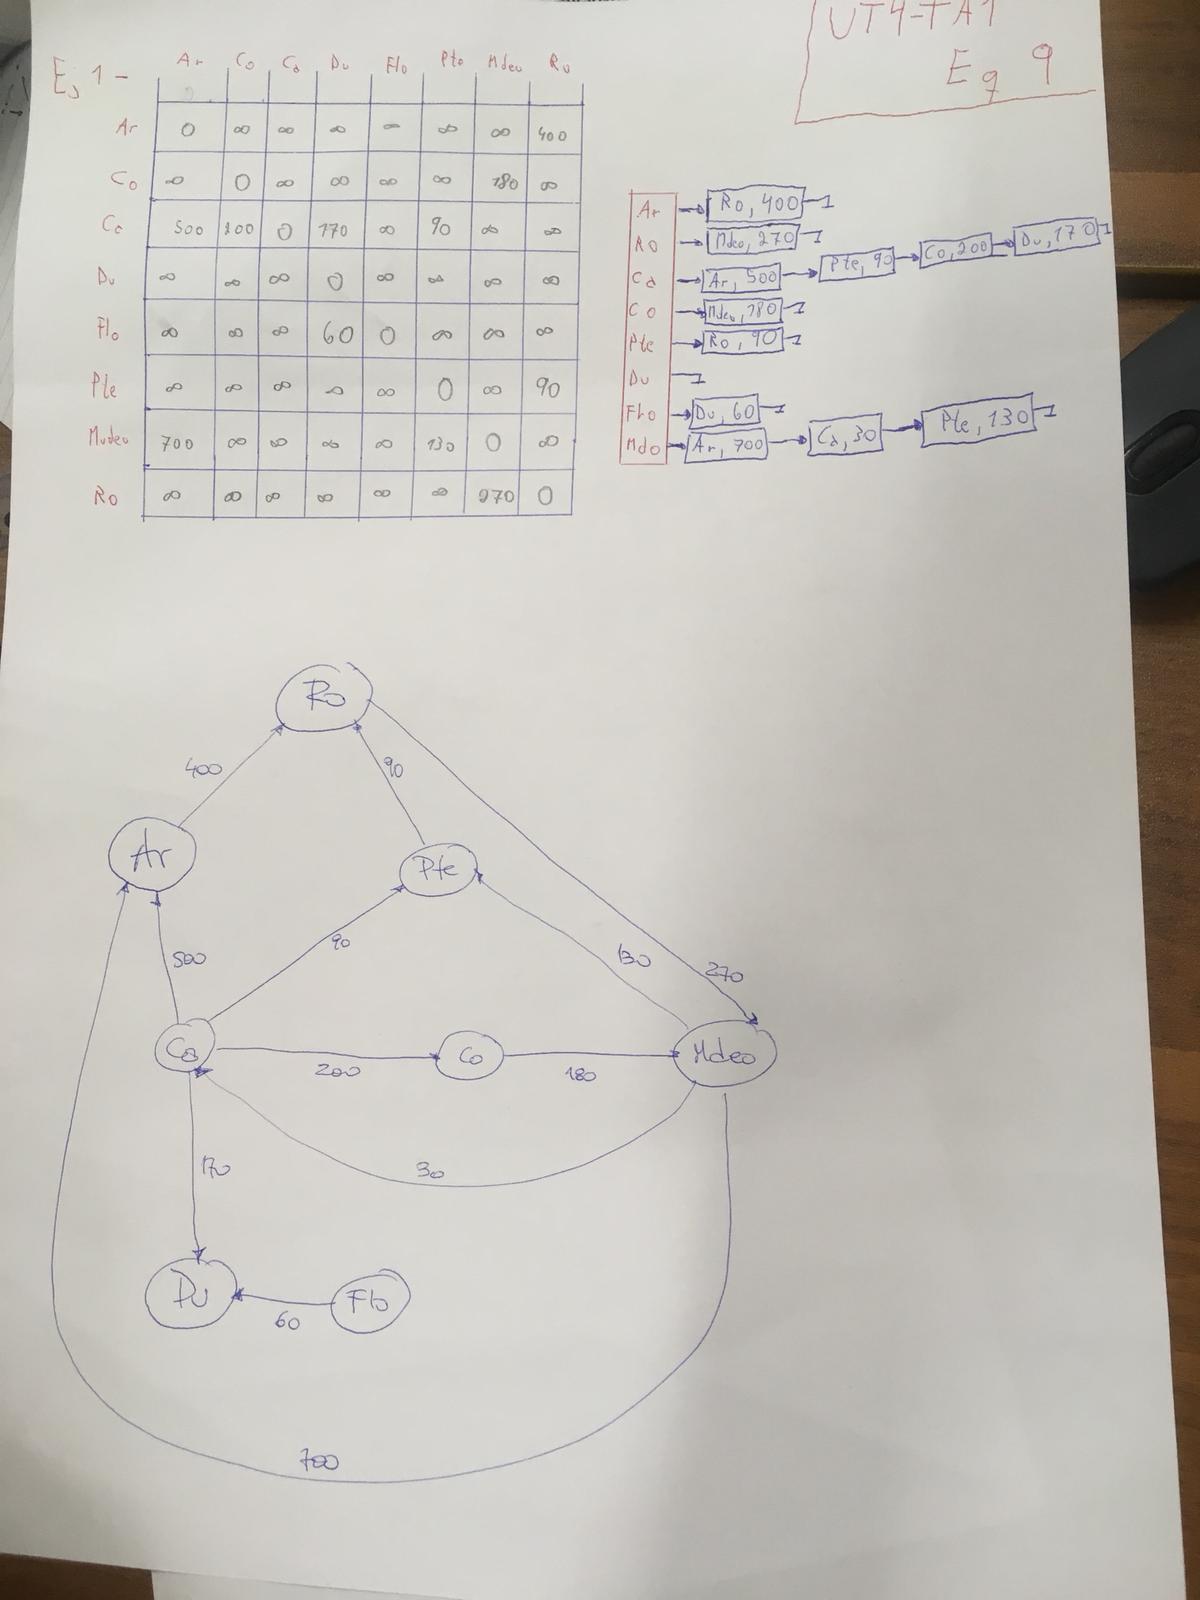 UT4-TA1
Eq 9
Ej 1 -
Ar Co Ca Du Flo Pte Mdeo Ro
Ar 0 ∞ ∞ ∞ ∞ ∞ ∞ 400
Co ∞ 0 ∞ ∞ ∞ ∞ 180 ∞
Ca 500 200 0 170 ∞ 90 ∞ ∞
Du ∞ ∞ ∞ 0 ∞ ∞ ∞ ∞
Flo ∞ ∞ ∞ 60 0 ∞ ∞ ∞
Pte ∞ ∞ ∞ ∞ ∞ 0 ∞ 90
Mvdeo 700 ∞ ∞ ∞ ∞ 130 0 ∞
Ro ∞ ∞ ∞ ∞ ∞ ∞ 270 0
Ar Ro, 400
Ro Mdeo, 270
Ca Ar, 500 Pte, 90 Co, 200 Du, 170
Co Mdeo, 180
Pte Ro, 90
Du
Flo Du, 60
Mdo Ar, 700 Ca, 30 Pte, 130
Ro
400
90
Ar
Pte
500
90
130
270
Ca
Co
Mdeo
200
180
170
30
Du
Flo
60
700